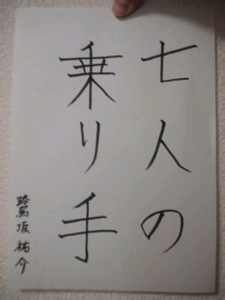 七人の
乗り手
鷺坂祐介